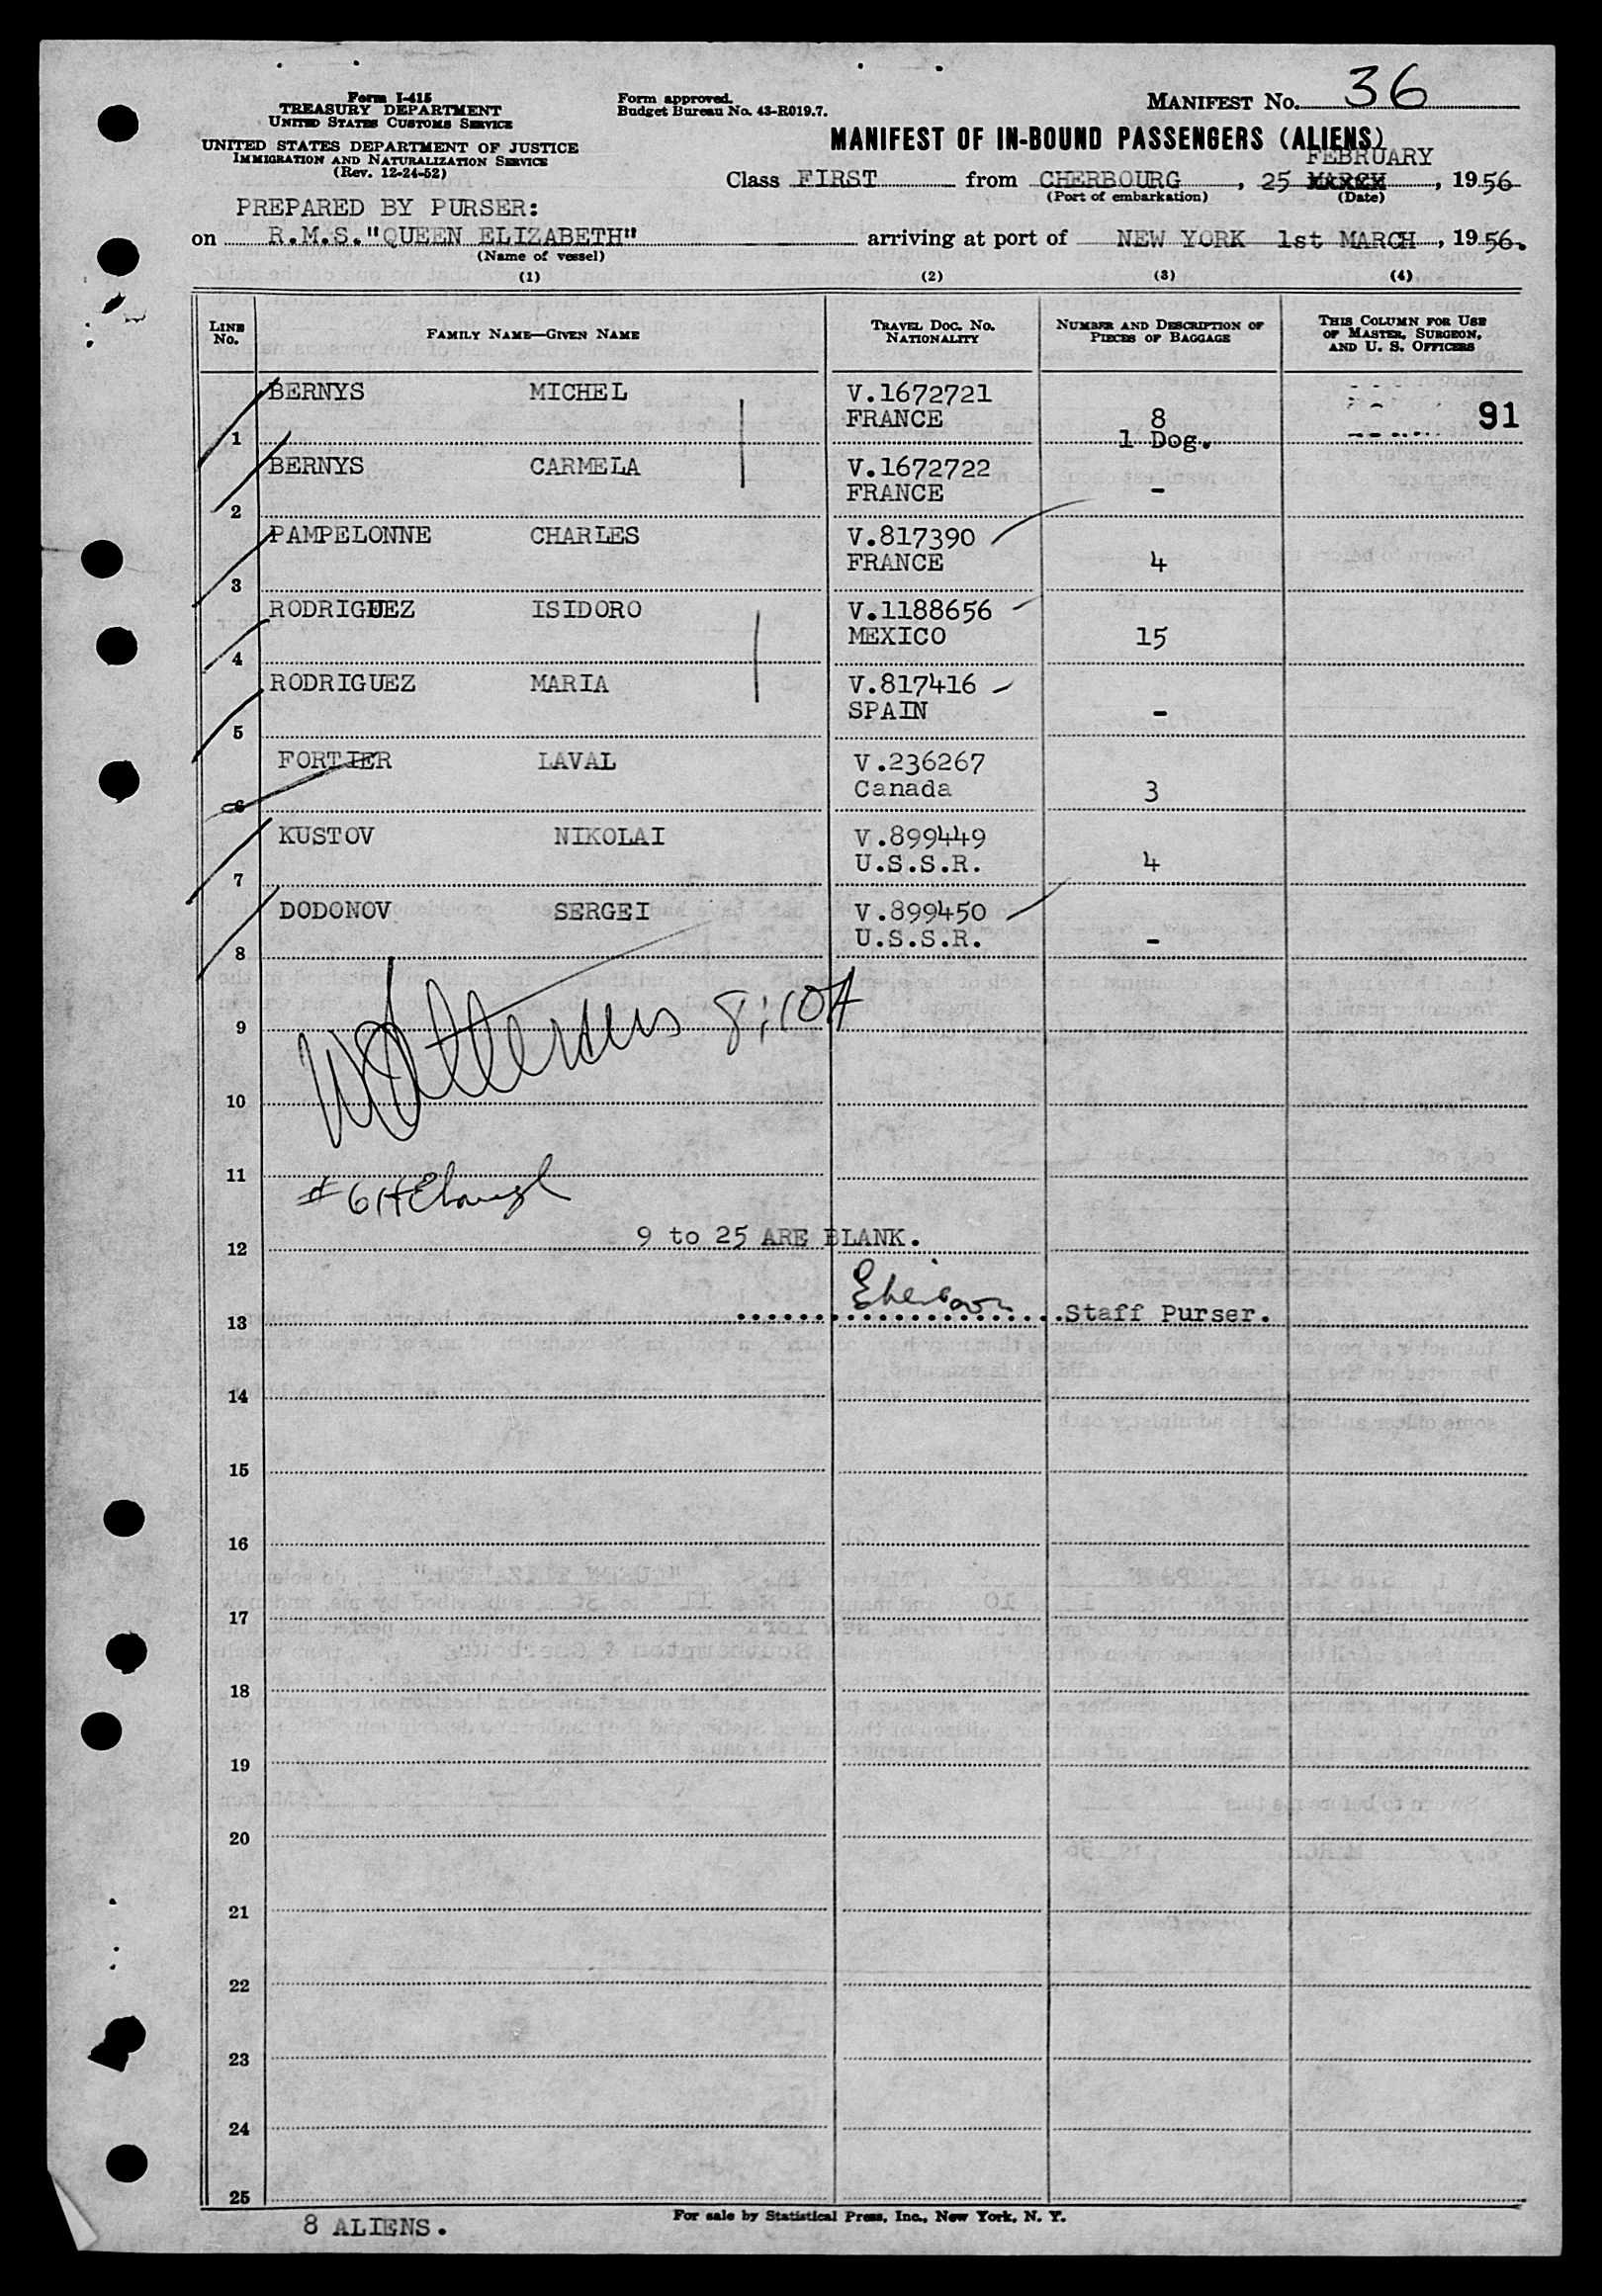 Form I-415
TREASURY DEPARTMENT
UNITED STATES CUSTOMS SERVICE
UNITED STATES DEPARTMENT OF JUSTICE
IMMIGRATION AND NATURALIZATION SERVICE
(Rev. 12-24-52)
Form approved.
Budget Bureau No. 43-R019.7.
MANIFEST NO. 36
MANIFEST OF IN-BOUND PASSENGERS (ALIENS)
FEBRUARY
Class FIRST from CHERBOURG, 25 MARCH, 1956
(Port of embarkation) (Date)
PREPARED BY PURSER:
on R.M.S."QUEEN ELIZABETH" arriving at port of NEW YORK 1st MARCH, 1956.
(Name of vessel)
(1) (2) (3) (4)
LINE NO. FAMILY NAME—GIVEN NAME TRAVEL DOC. NO. NATIONALITY NUMBER AND DESCRIPTION OF PIECES OF BAGGAGE THIS COLUMN FOR USE OF MASTER, SURGEON, AND U. S. OFFICERS
BERNYS MICHEL V.1672721
FRANCE 8 91
1 1 Dog.
BERNYS CARMELA V.1672722
FRANCE -
2
PAMPELONNE CHARLES V.817390
FRANCE 4
3
RODRIGUEZ ISIDORO V.1188656
MEXICO 15
4
RODRIGUEZ MARIA V.817416
SPAIN -
5
FORTIER LAVAL V.236267
Canada 3
6
KUSTOV NIKOLAI V.899449
U.S.S.R. 4
7
DODONOV SERGEI V.899450
U.S.S.R. -
8
9
10
11
#6
9 to 25 ARE BLANK.
12
13 Staff Purser.
14
15
16
17
18
19
20
21
22
23
24
25
8 ALIENS.
For sale by Statistical Press, Inc., New York, N. Y.